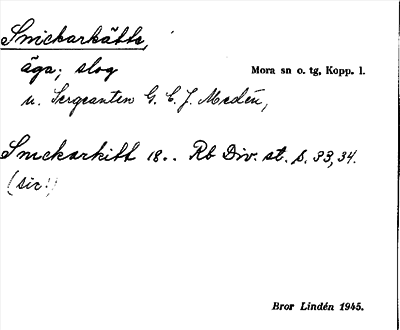 Snickarkätte,
äga; slog Mora sn o. tg, Kopp. l.
u. Sergeanten G. E. J. Medén,
Snickarkitt 18.. Rb Div. st. s. 33, 34.
(sic!)
Bror Lindén 1945.